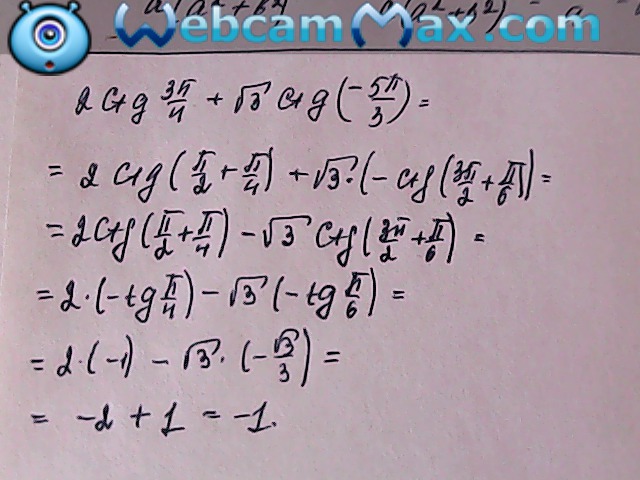 WebcamMax.com
2 ctg 3π/4 + √3 ctg(-5π/3) =
= 2 ctg(π/2 + π/4) + √3·(-ctg(3π/2 + π/6)) =
= 2ctg(π/2 + π/4) - √3 ctg(3π/2 + π/6) =
= 2·(-tg π/4) - √3 (-tg π/6) =
= 2·(-1) - √3·(-√3/3) =
= -2 + 1 = -1.